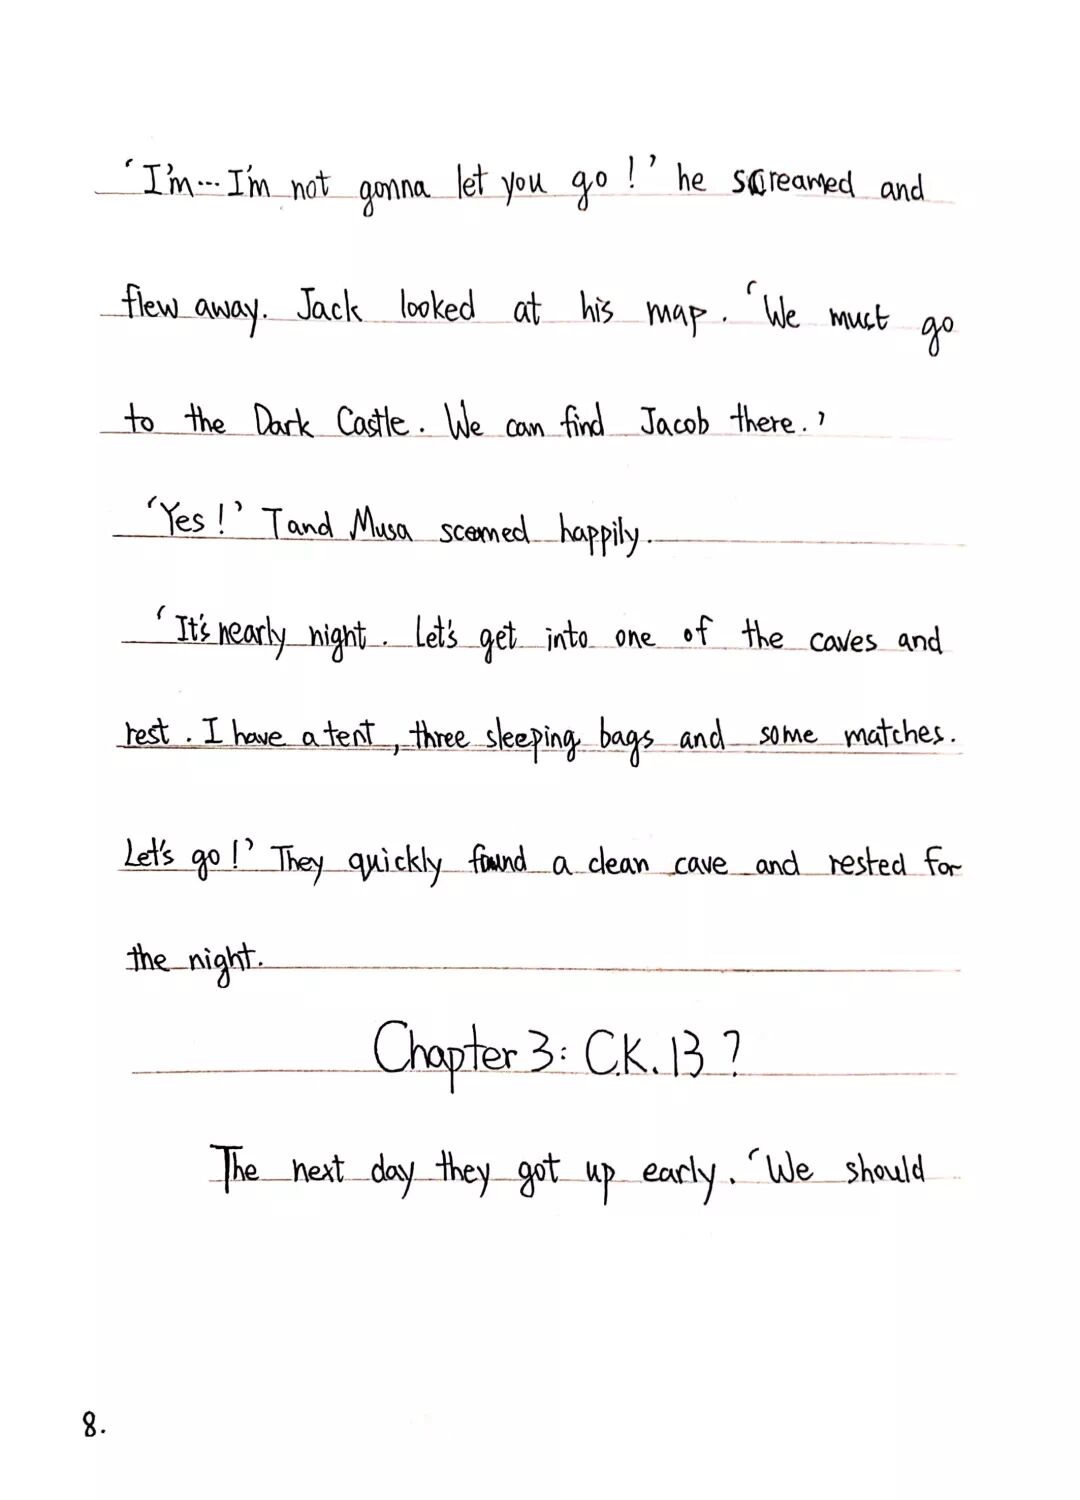 'I'm... I'm not gonna let you go!' he screamed and
flew away. Jack looked at his map. 'We must go
to the Dark Castle. We can find Jacob there.'
'Yes!' T and Musa seemed happily.
'It's nearly night. Let's get into one of the caves and
rest. I have a tent, three sleeping bags and some matches.
Let's go!' They quickly found a clean cave and rested for
the night.
Chapter 3: C.K. 13?
The next day they got up early. 'We should
8.